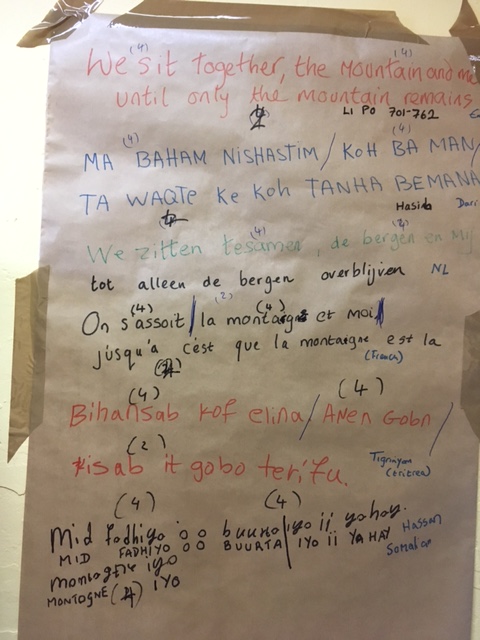 (4) (4)
We sit together, the Mountain and me
until only the mountain remains
LI PO 701-762
(4) (4)
MA BAHAM NISHASTIM / KOH BA MAN /
TA WAQTE Ke KOH TANHA BEMANA
Hasida Dari
(4) (4)
We zitten tesamen, de bergen en Mij
tot alleen de bergen overblijven NL
(4) (2) (4)
On s'assoit / la montaigne et moi /
jusqu'a c'est que la montaigne est la
(French)
(4) (4)
Bihansab kof elina / Anen Gobn /
(2)
kisab it gobo terifu.
Tigrinyan
(Eritrea)
(4) (4)
Mid fadhiyo oo buurta iyo ii yahay Hassan
MID FADHIYO OO BUURTA IYO ii YAHAY Somalia
montagne iyo
MONTOGNE (4) IYO